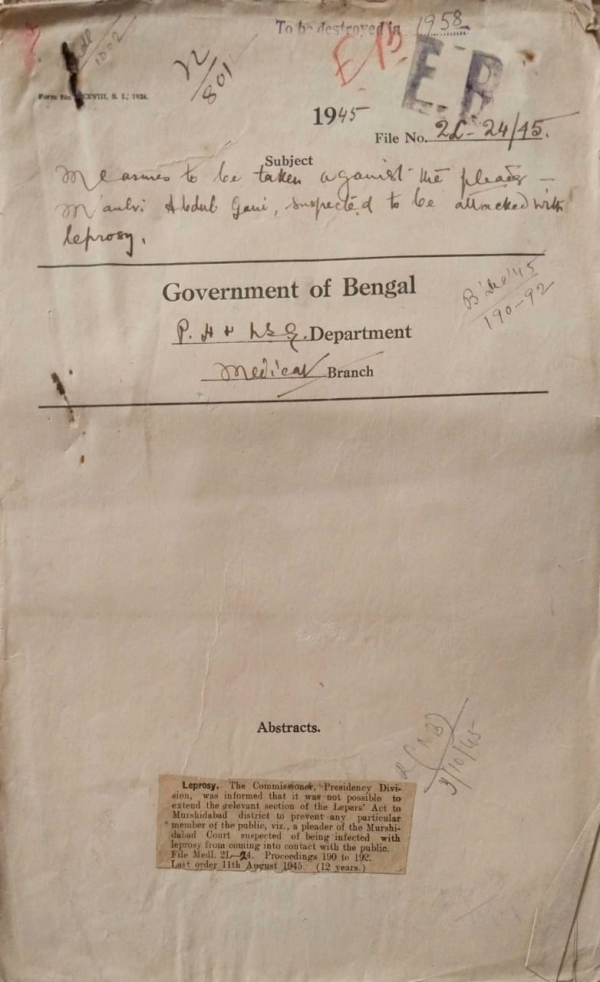 To be destroyed in 1958
12/801
E.B
E.B
Form No. XXVIII, S. I., 1936.
1945
File No. 2L-24/45.
Subject
Measures to be taken aganist the pleader —
Maulvi Abdul Gani, suspected to be attacked with
leprosy.
Government of Bengal
P. H & L.S.G. Department
Medical Branch
B' Dec '45
190-92
Abstracts.
3/10/45
Leprosy. The Commissioner, Presidency Divi-
sion, was informed that it was not possible to
extend the relevant section of the Lepers' Act to
Murshidabad district to prevent any particular
member of the public, viz., a pleader of the Murshi-
dabad Court suspected of being infected with
leprosy from coming into contact with the public.
File Medl. 2L-24. Proceedings 190 to 192.
Last order 11th August 1945. (12 years.)